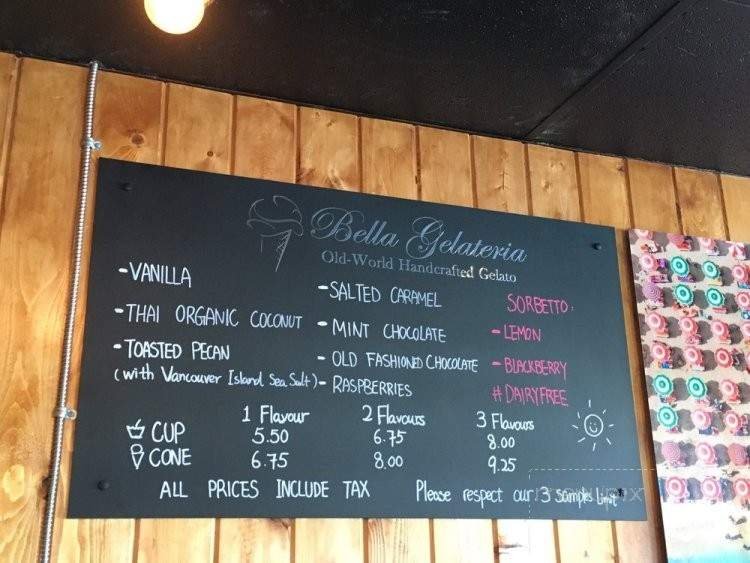 Bella Gelateria
Old-World Handcrafted Gelato
-VANILLA
-THAI ORGANIC COCONUT
-TOASTED PECAN
(with Vancouver Island Sea Salt)
-SALTED CARAMEL
-MINT CHOCOLATE
-OLD FASHIONED CHOCOLATE
-RASPBERRIES
SORBETTO:
-LEMON
-BLACKBERRY
#DAIRYFREE
1 Flavour 2 Flavours 3 Flavours
CUP 5.50 6.75 8.00
CONE 6.75 8.00 9.25
ALL PRICES INCLUDE TAX Please respect our 3 samples Limit